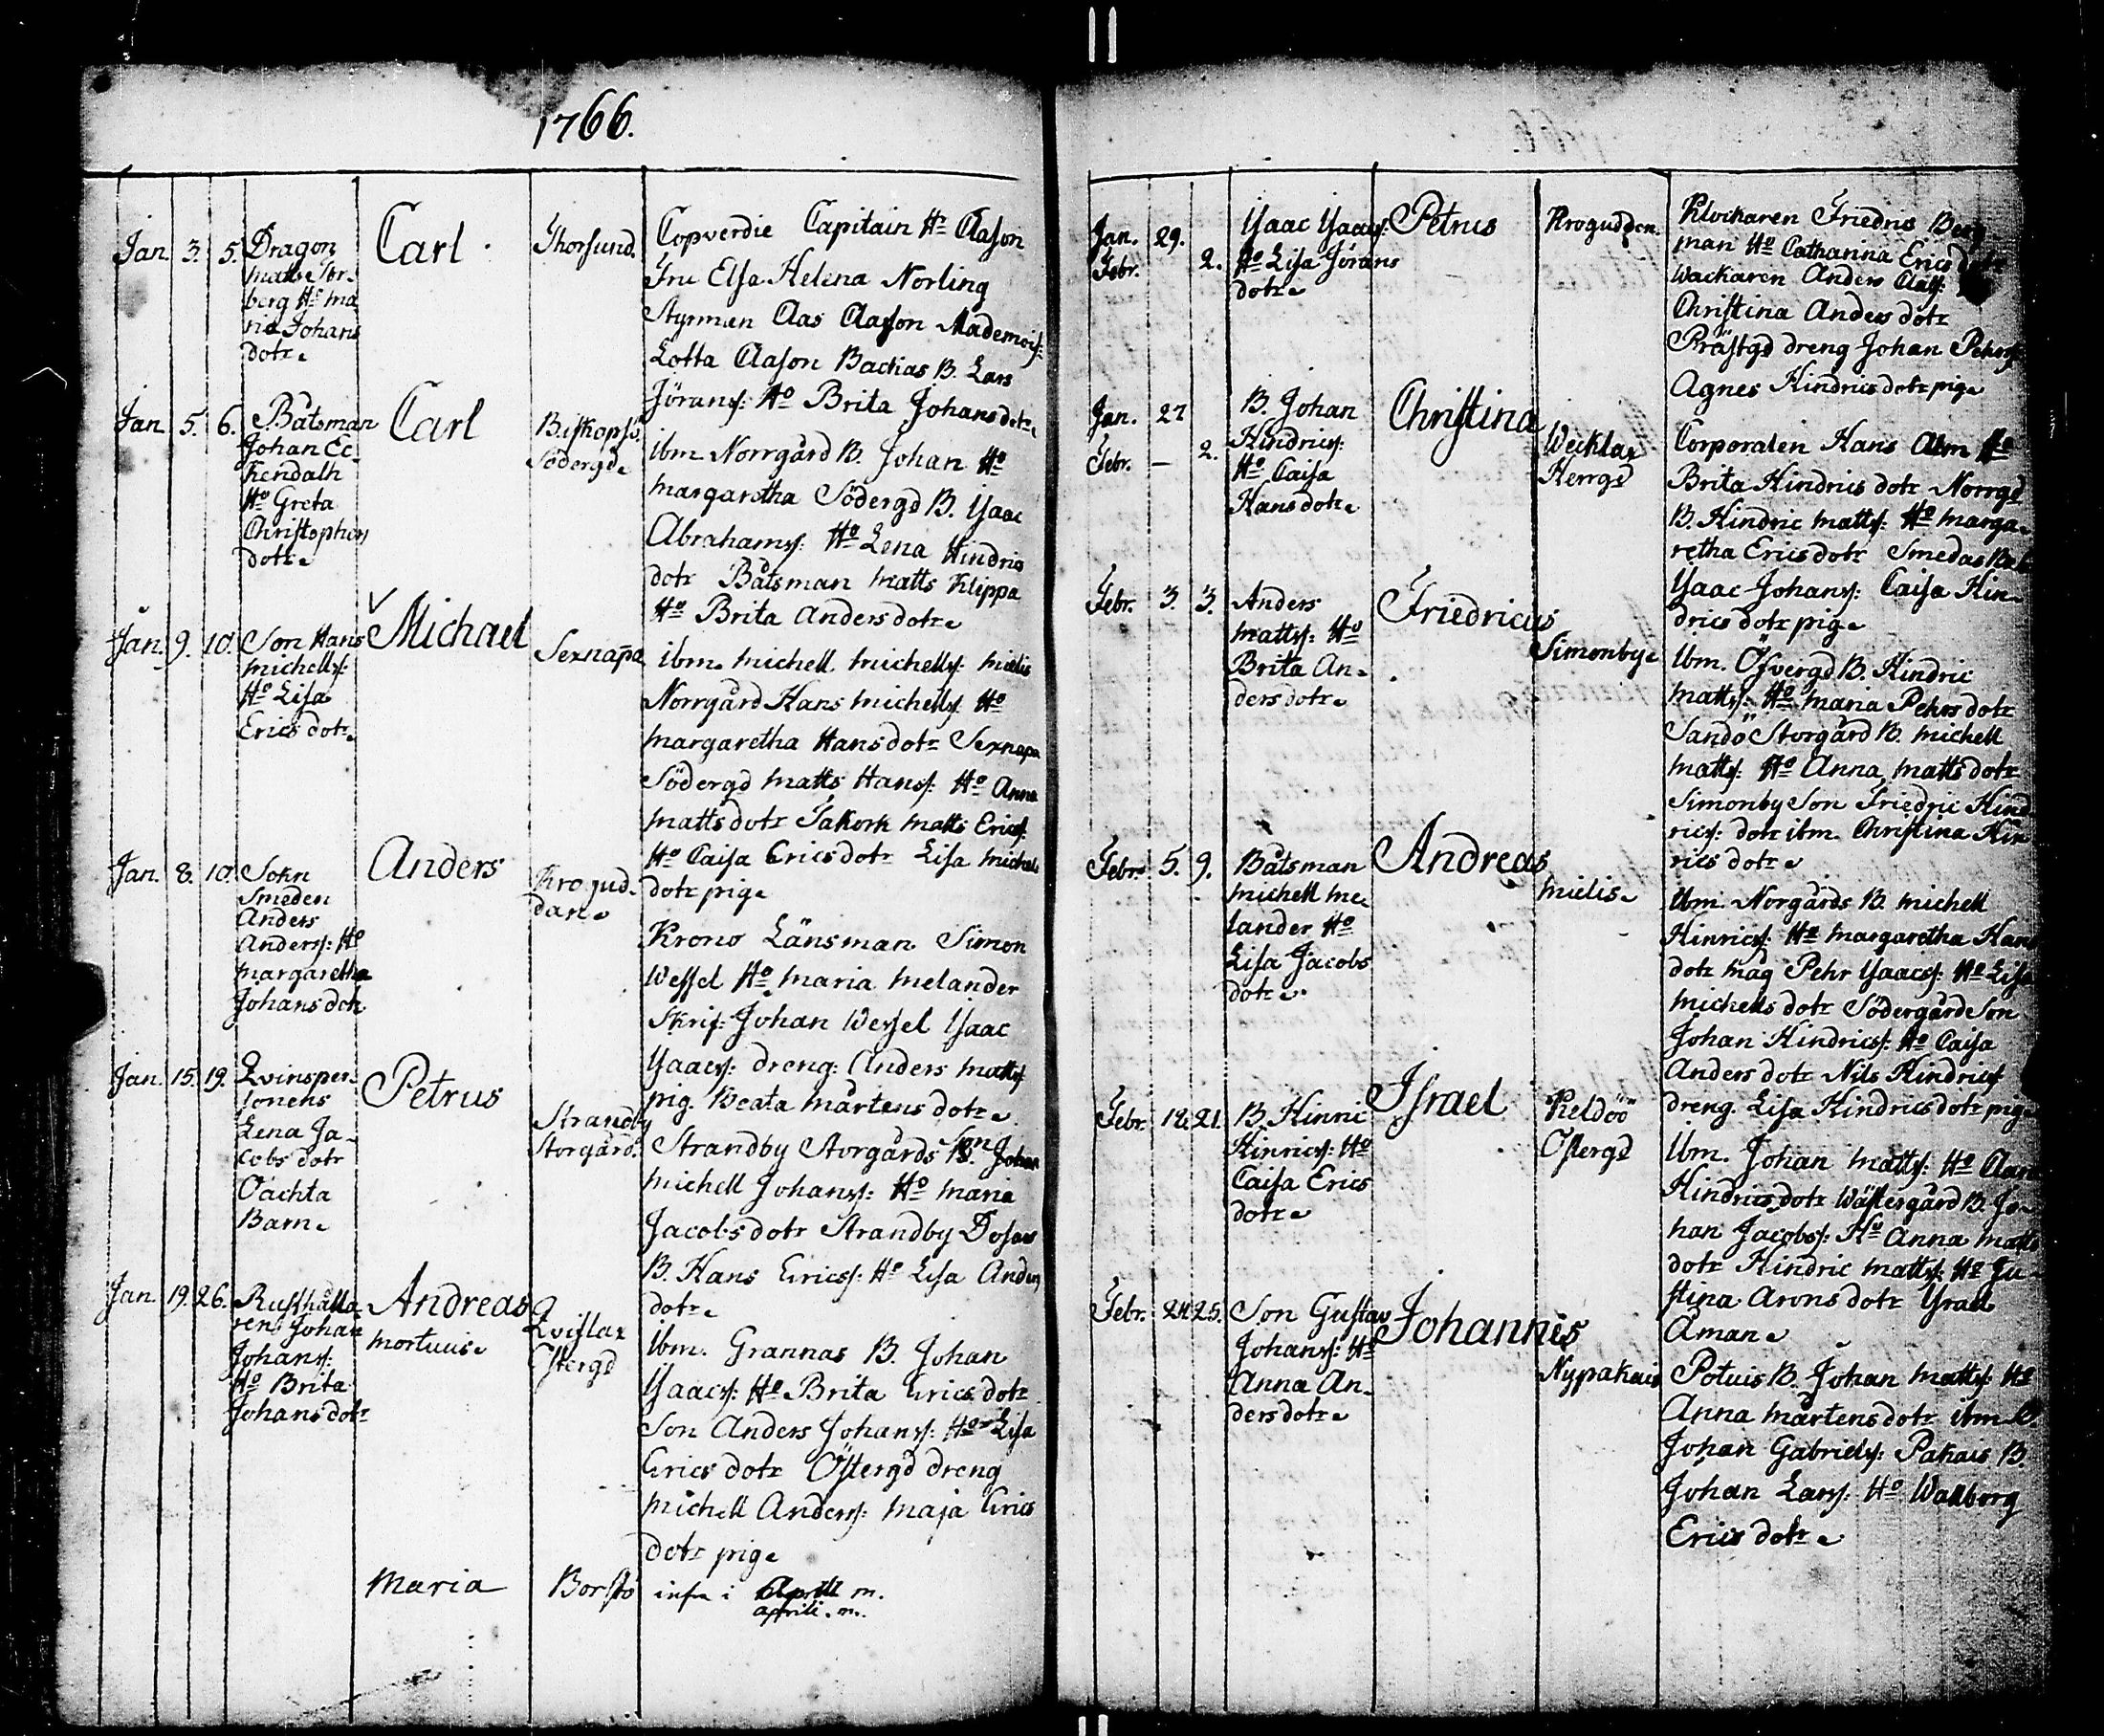 1766.
Jan. 3. 5. Dragon
matts Tor-
berg Ho ma
ria Johans
dotr.
Carl
Thorsund.
Copverdie Capitain Hr Clason
Fru Elsa Helena Norling
Styrman Clas Clason Mademois:
Lotta Clason Backas B. Lars
Jörans: Ho Brita Johans dotr.
Jan. 5. 6. Båtsman
Johan Ec-
kendalh
Ho Greta
Christophers
dotr.
Carl
Biskopsö
Södergd.
ibm Norrgård B. Johan Ho
margaretha Södergd B. Ysaac
Abrahams: Ho Lena Hindrics
dotr Båtsman matts Klippa
Ho Brita Anders dotr.
Jan. 9. 10. Son Hans
michells:
Ho Lisa
Erics dotr.
Michael
Sexnapa
ibm. michell michells: mielis
Norrgård Hans michells: Ho
margaretha Hans dotr Sexnapa
Södergd matts Hans: Ho Anna
matts dotr Jakork matts Erics:
Ho Caisa Erics dotr Lisa michels
dotr pig.
Jan. 8. 10. Sokn
Smeden
Anders
Anders: Ho
margaretha
Johans dotr
Anders
Krogud-
dan.
Krono Länsman Simon
Wessel Ho maria melander
Skrif: Johan Wessel Ysaac
Ysaacs: dreng: Anders matts:
pig. Beata mårtens dotr.
Jan. 15. 19. Qvinsper-
sonens
Lena Ja-
cobs dotr
Oächta
Barn.
Petrus
Strandby
Storgård.
Strandby Storgårds B. Son Johan
michell Johans: Ho maria
Jacobs dotr Strandby Dosas
B. Hans Erics: Ho Lisa Anders
dotr.
Jan. 19. 26. Rusthålla
ren Johan
Johans:
Ho Brita
Johans dotr
Andreas
mortuus.
Qvislax
Östergd
ibm. Grannas B. Johan
Ysaacs: Ho Brita Erics dotr
Son Anders Johans: Ho Lisa
Erics dotr Östergd dreng
michell Anders: maja Erics
dotr pig.
Maria
Borstö
infra i
aprili. m.
Jan. 29.
Febr. 2.
Ysaac Ysaacs:
Ho Lisa Jörans
dotr.
Petrus
Krogudden.
Klockaren Friedric Berg
man Ho Catharina Erics dotr
Wackaren Anders Clas:
Christina Anders dotr
Prästgd dreng Johan Pehrs:
Agnes Hindrics dotr pig.
Jan. 27
Febr. — 2.
B. Johan
Hindrics:
Ho Caisa
Hans dotr.
Christina
Wecklax
Herrgd
Corporalen Hans Alm Ho
Brita Hindrics dotr Norrgd
B. Hindric matts: Ho marga-
retha Erics dotr Smedas
Ysaac Johans: Caisa Hin-
drics dotr pig.
Febr. 3. 3. Anders
matts: Ho
Brita An-
ders dotr.
Friedricus
Simonby.
ibm. Öfvergd B. Hindric
matts: Ho maria Pehrs dotr
Sandö Storgård B. michell
matts: Ho Anna matts dotr
Simonby Son Friedric Hind
rics: dotr ibm. Christina Hin
rics dotr.
Febr. 5. 9. Båtsman
michell me-
lander Ho
Lisa Jacobs
dotr.
Andreas
mielis.
ibm. Norgårds B. michell
Hinrics: Ho margaretha Hans
dotr mag Pehr Ysaacs: Ho Lisa
michells dotr Södergård Son
Johan Hindrics: Ho Caisa
Anders dotr Nils Hindrics:
dreng. Lisa Hindrics dotr pig.
Febr. 18. 21. B. Hinric
Hinrics: Ho
Caisa Erics
dotr.
Israel
Keldöö
Östergd
ibm. Johan matts: Ho Clara
Hindrics dotr Wästergård B. Jo-
han Jacobs: Ho Anna matts
dotr Hindric matts: Ho Ju-
stina Arons dotr Ysrael
Aman.
Febr. 24. 25. Son Gustav
Johans: Ho
Anna An-
ders dotr.
Johannes
Nypakais
Potuis B. Johan matts: Ho
Anna mårtens dotr ibm B.
Johan Gabriels: Pakais B.
Johan Lars: Ho Wallborg
Erics dotr.